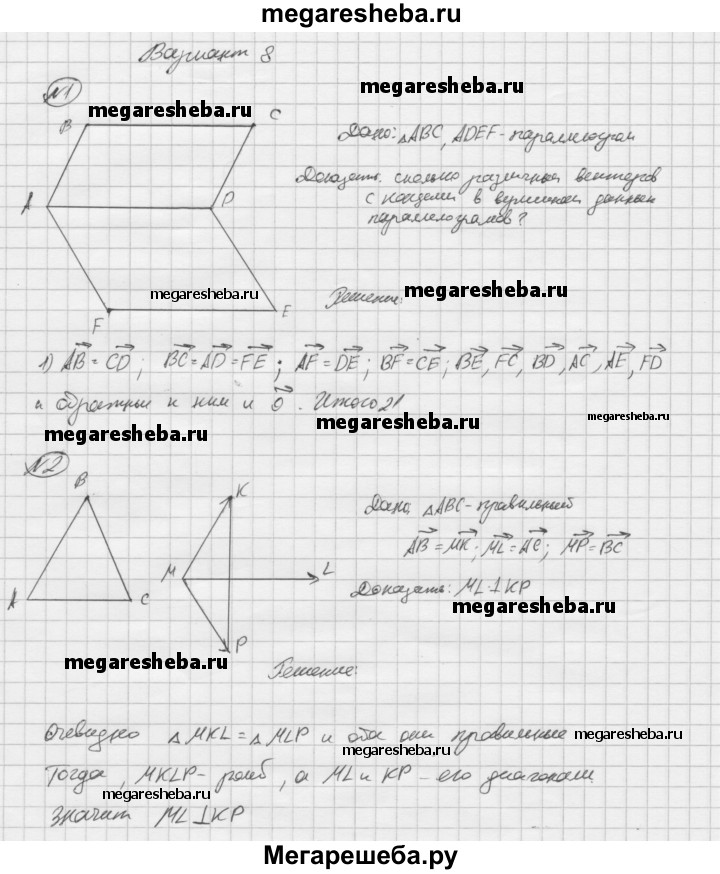 megaresheba.ru
Вариант 8
megaresheba.ru
№1
megaresheba.ru
B C
Дано: △ABC, ADEF - параллелограм
Доказать. сколько различных векторов
с концами в вершинах данных
параллелограмов?
A D
megaresheba.ru
megaresheba.ru
Решение:
F E
1) AB = CD; BC = AD = FE; AF = DE; BF = CE; BE, FC, BD, AC, AE, FD
и обратные к ним и 0. Итого 21
megaresheba.ru
megaresheba.ru
megaresheba.ru
№2
B K
Дано, △ABC - правильный
AB = MK; ML = AC; MP = BC
M L
Доказать: ML ⊥ KP
A C
megaresheba.ru
P
megaresheba.ru
Решение:
Очевидно △MKL = △MLP и оба они правильные
megaresheba.ru
megaresheba.ru
Тогда, MKLP - ромб, а ML и KP - его диагонали
megaresheba.ru
Значит ML ⊥ KP
megaresheba.ru
Мегарешеба.ру